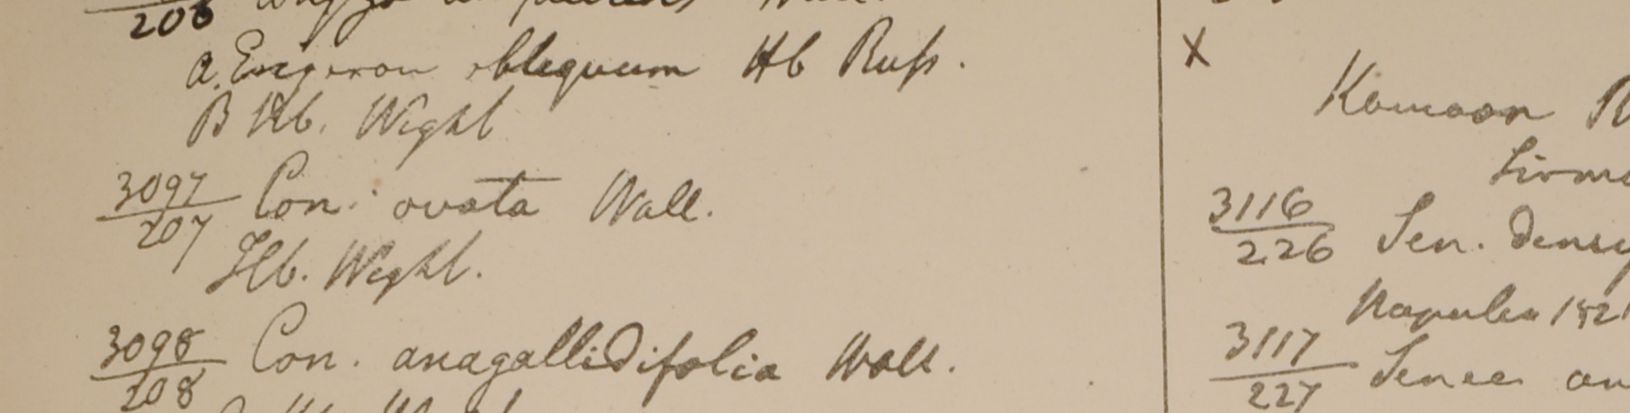 206
a. Erigeron obliquum Hb Russ.
B Hb. Wight
3097
207 Con. ovata Wall.
Hb. Wight.
3098
208 Con. anagallidifolia Wall.
X
Kamaon
Sirmo
3116
226 Sen. dens
Napalia 182
3117
227 Senec